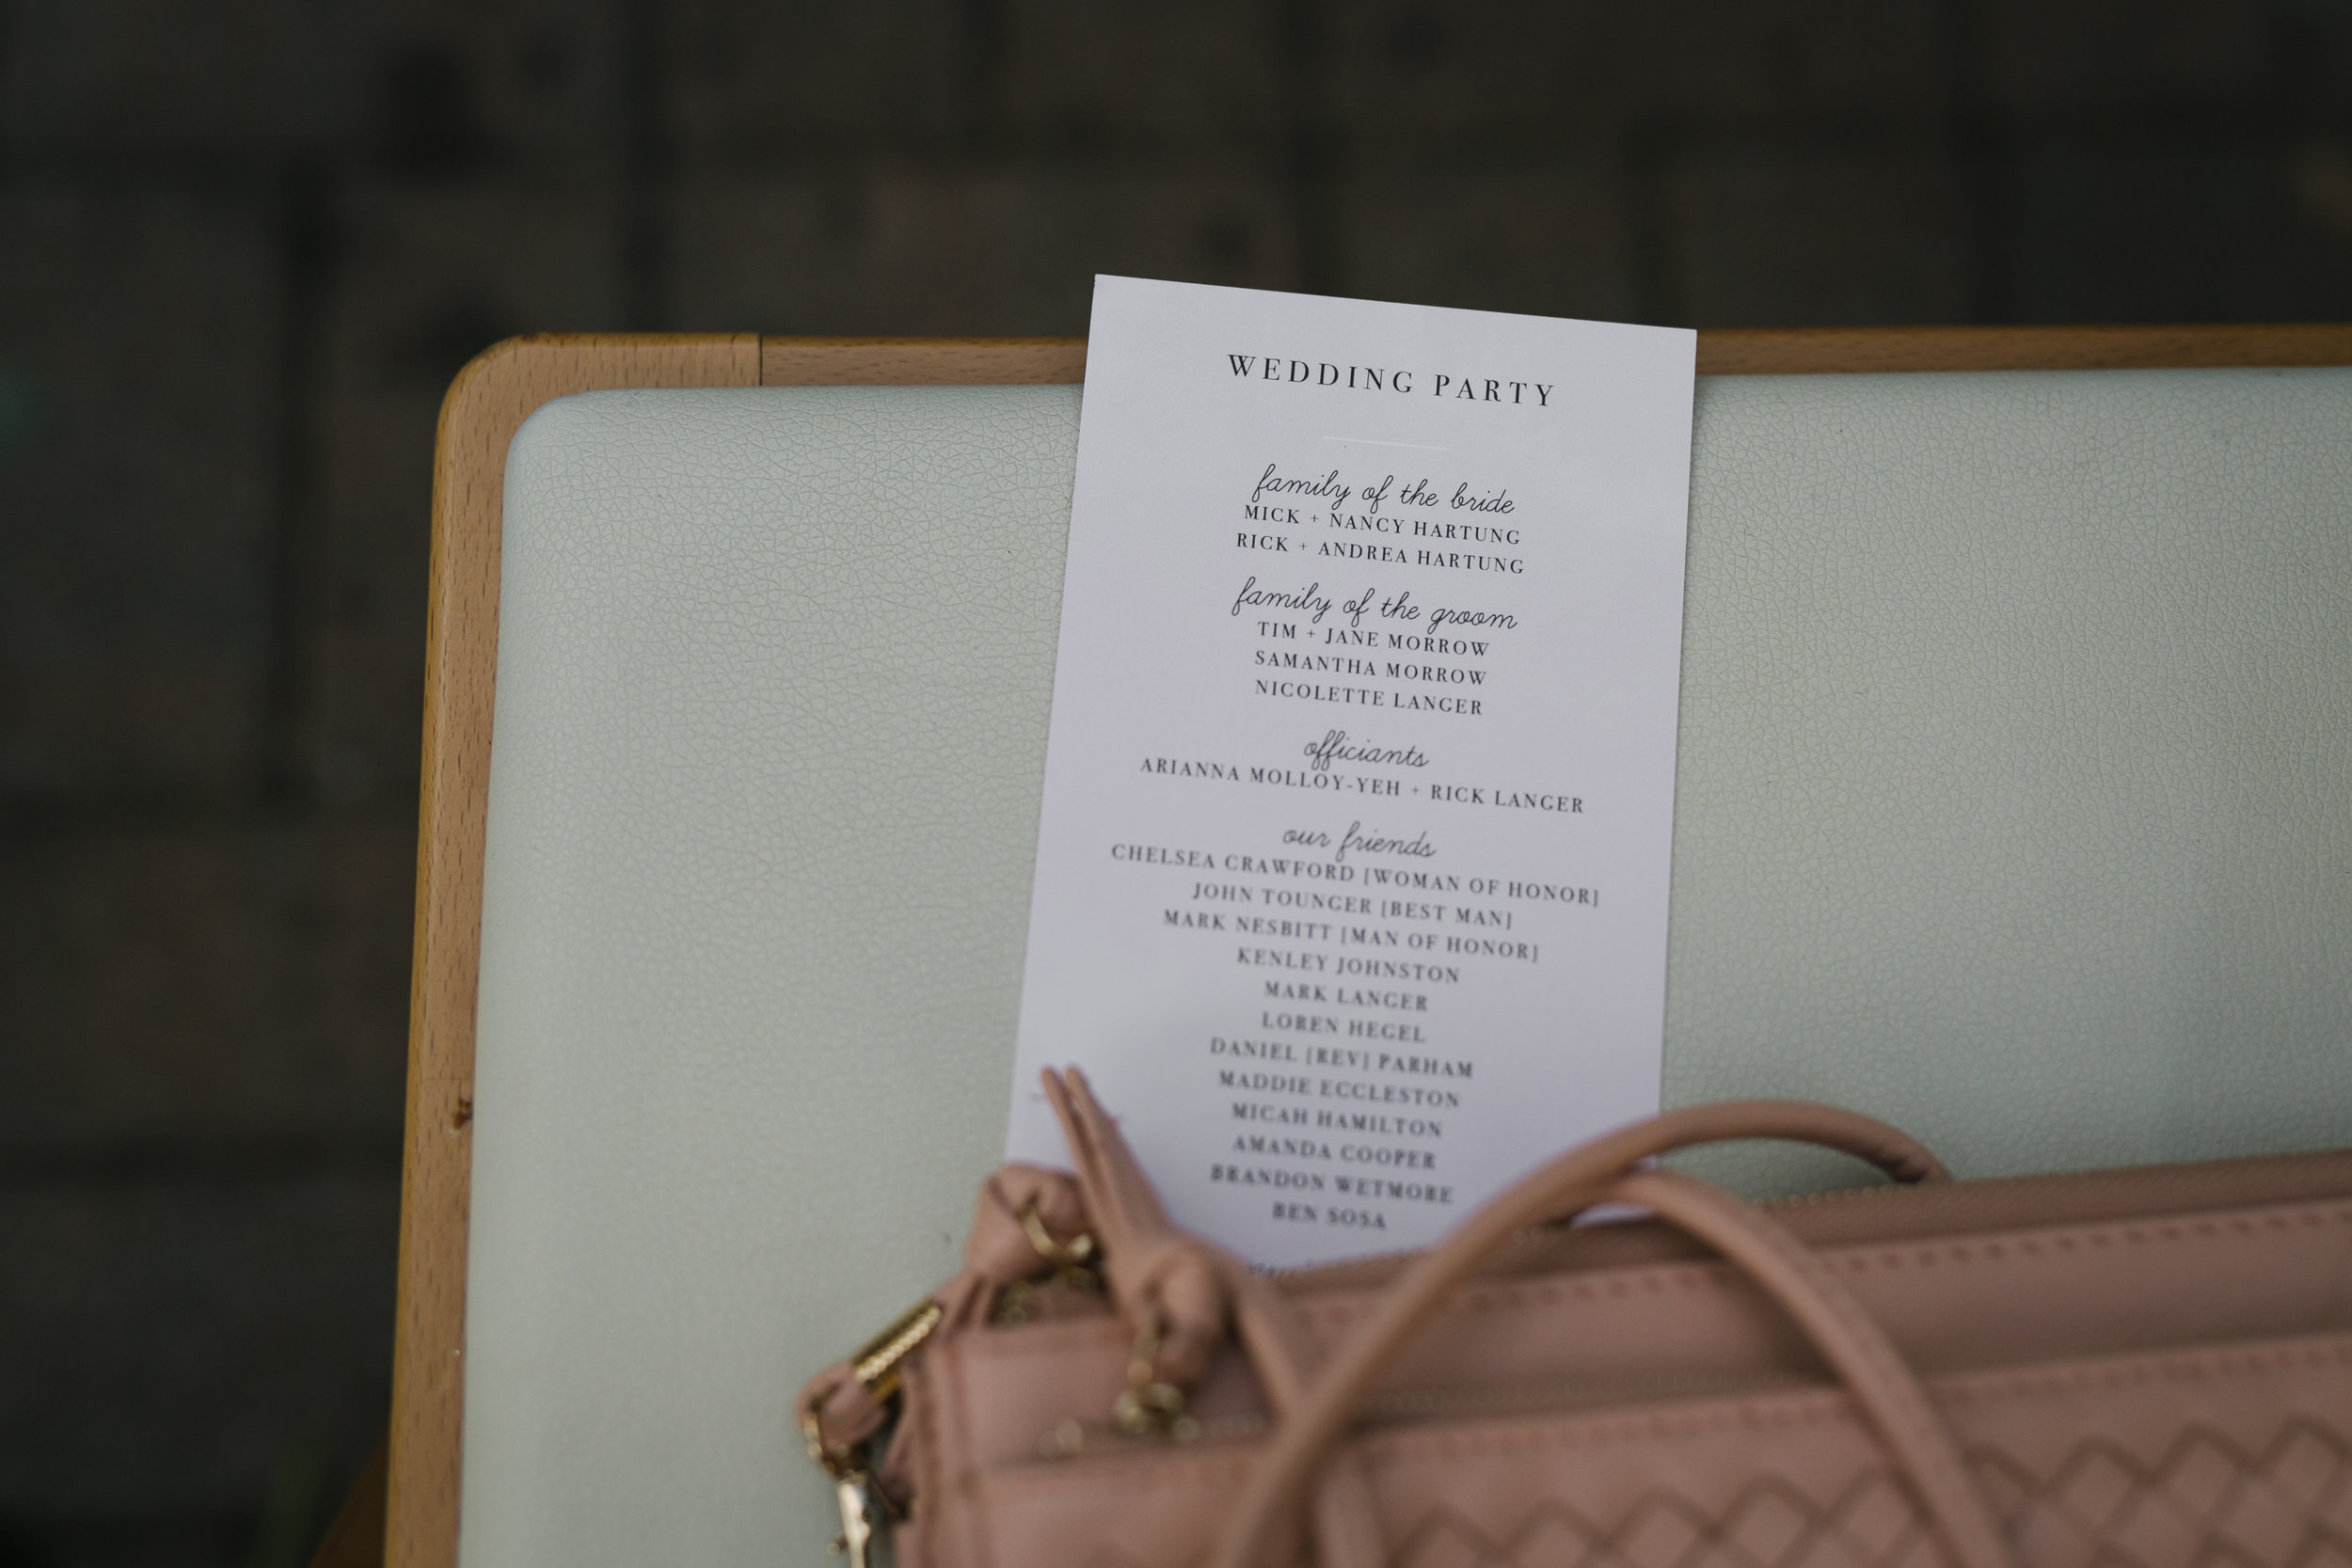 WEDDING PARTY
family of the bride
MICK + NANCY HARTUNG
RICK + ANDREA HARTUNG
family of the groom
TIM + JANE MORROW
SAMANTHA MORROW
NICOLETTE LANGER
officiants
ARIANNA MOLLOY-YEH + RICK LANGER
our friends
CHELSEA CRAWFORD [WOMAN OF HONOR]
JOHN TOUNGER [BEST MAN]
MARK NESBITT [MAN OF HONOR]
KENLEY JOHNSTON
MARK LANGER
LOREN HEGEL
DANIEL [REV] PARHAM
MADDIE ECCLESTON
MICAH HAMILTON
AMANDA COOPER
BRANDON WETMORE
BEN SOSA